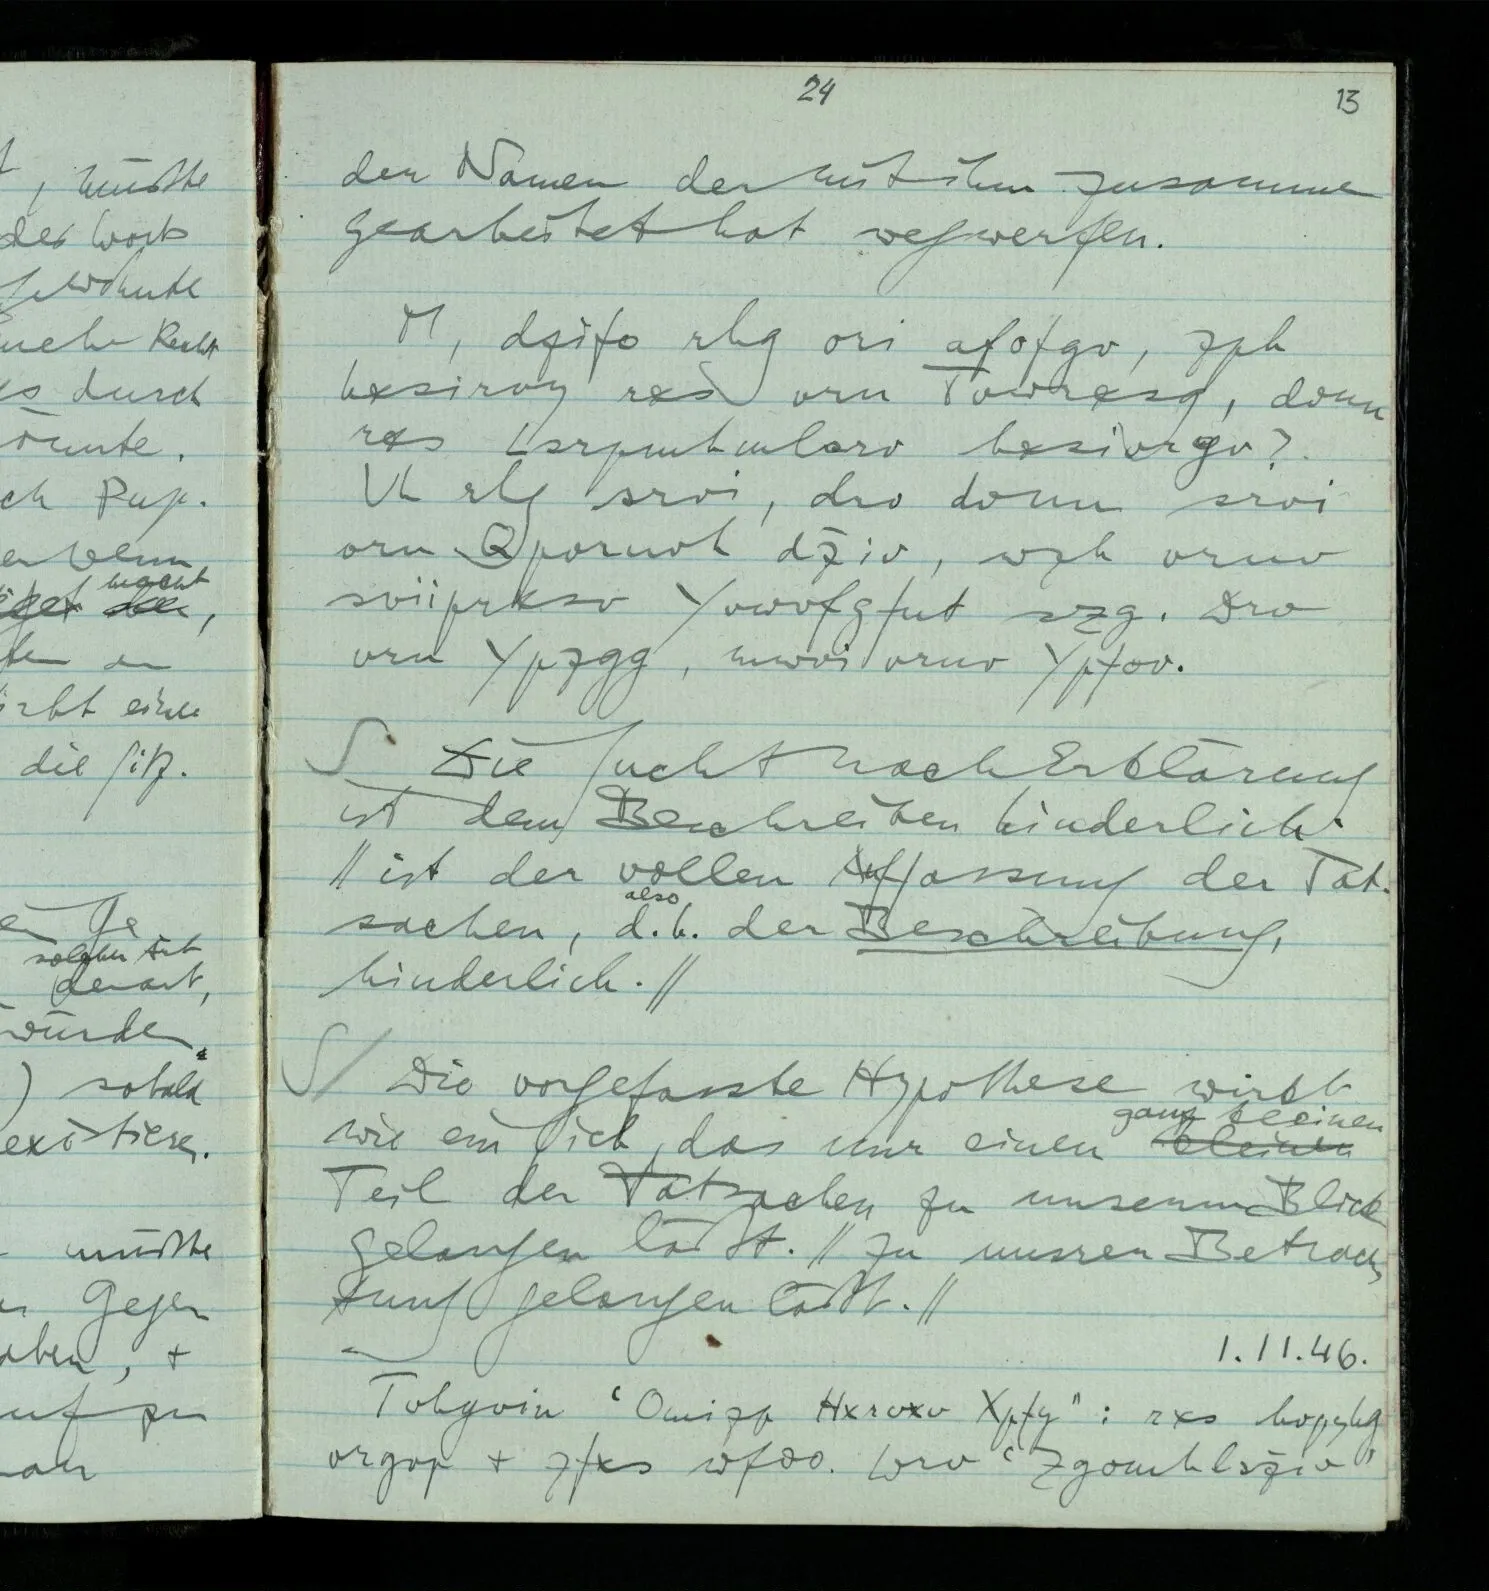 , müsste
des Worts
gewohnte
Recht
durch
könnte.
Pup.
wenn
macht
die Sitz.
solcher Art
derart,
würden
) sobald
existieren.
müsste
Gegen
haben, +
auf zu
24
13
den Namen der mit ihm zusamme
gearbeitet hat wegwerfen.
M, dzifo rhg ori afofgv, zph
hxsirvy rxs vrn Tvwrxsg, dvnn
rxs Lsrpmhmlsrv hxsivrgv?
Vh rhg srvi, drv dvnn srvi
vrn Qpvrnvh dziv, wzh vrnv
sviiprxsv Yvwvfgfnt szg. Drv
vrn Ypzgg, mwvi vrnv Ypfov.
S Die Sucht nach Erklärung
ist dem Beschreiben hinderlich.
// ist der vollen Auffassung der Tat-
sachen, also d.h. der Beschreibung,
hinderlich. //
S/ Die vorgefasste Hypothese wirkt
wie ein Sieb, das nur einen kleinen ganz kleinen
Teil der Tatsachen zu unserem Blick
gelangen läßt. // zu unsrer Betrach
tung gelangen läßt. //
1.11.46.
Tvhgvin "Omizpp Hxrvxv Xpfy": rxs hvpyhg
vrgvp + zfxs wfoo. Wrv "Zgomhlsziv"